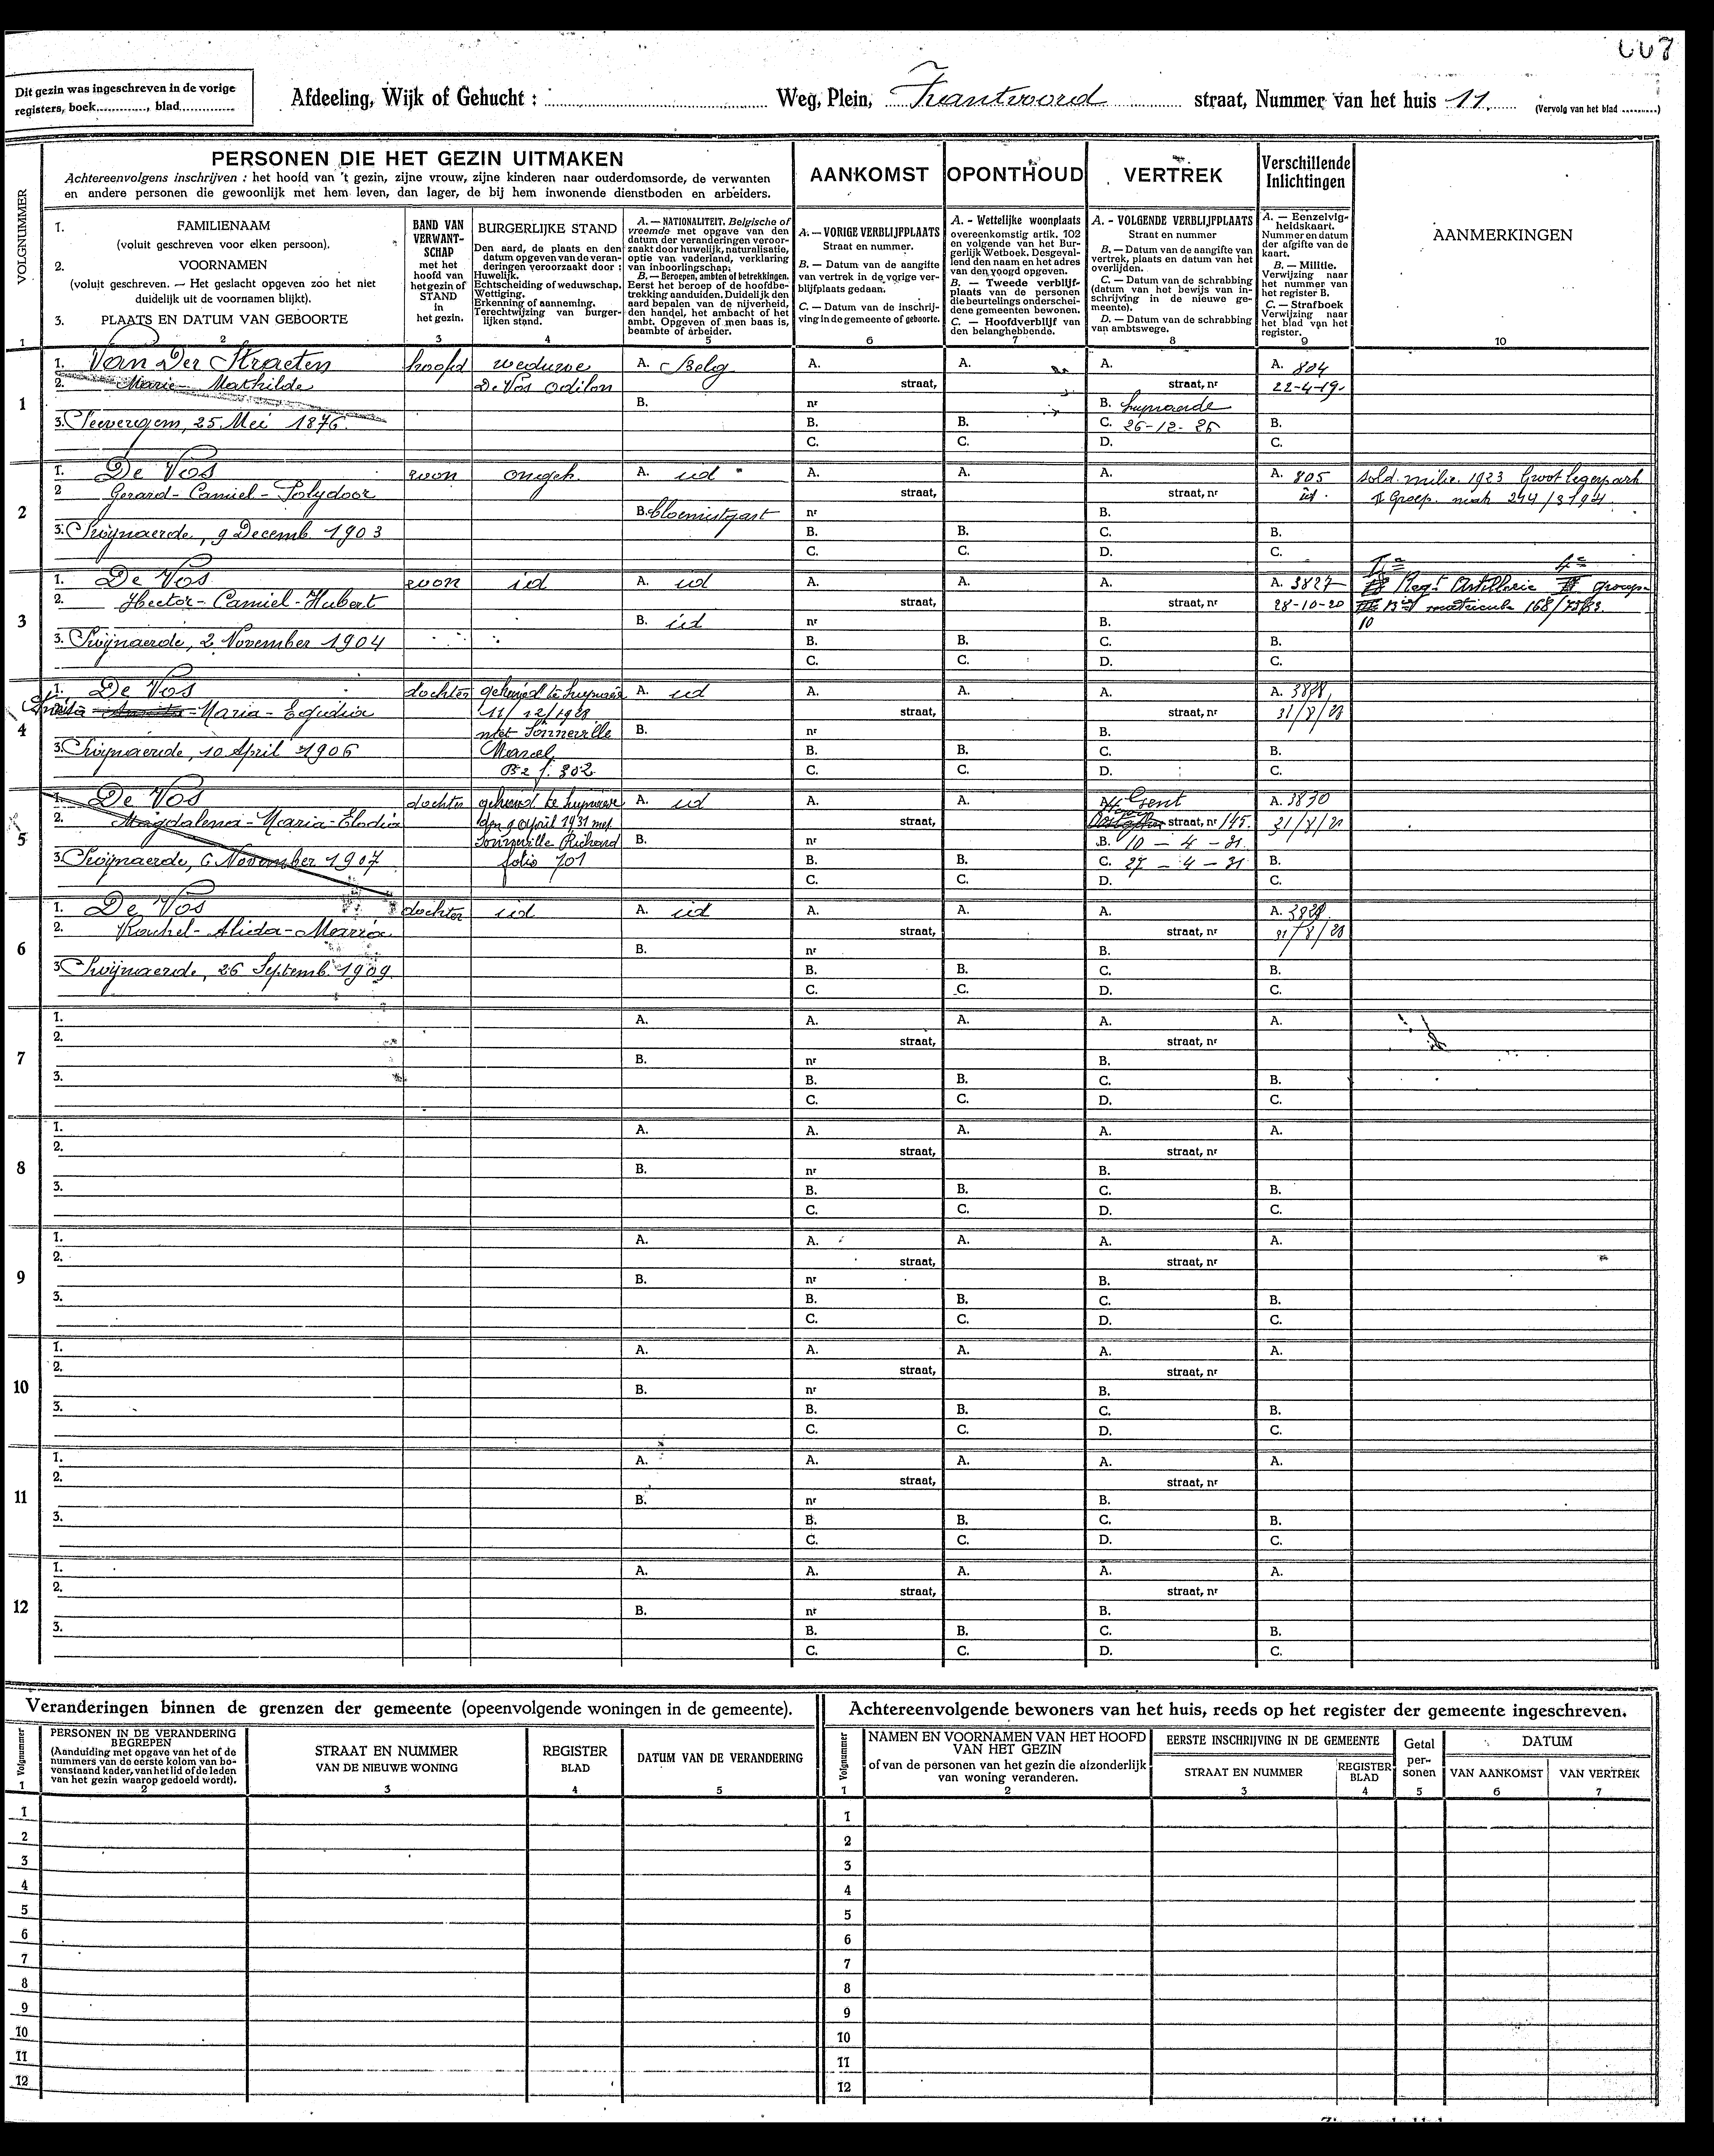 Dit gezin was ingeschreven in de vorige
registers, boek............, blad..............
Afdeeling, Wijk of Gehucht :
Weg, Plein, Zwantvoord straat, Nummer van het huis 11
(Vervolg van het blad ..........)
VOLGNUMMER
PERSONEN DIE HET GEZIN UITMAKEN
Achtereenvolgens inschrijven : het hoofd van 't gezin, zijne vrouw, zijne kinderen naar ouderdomsorde, de verwanten
en andere personen die gewoonlijk met hem leven, dan lager, de bij hem inwonende dienstboden en arbeiders.
AANKOMST
OPONTHOUD
VERTREK
Verschillende
Inlichtingen
AANMERKINGEN
1. FAMILIENAAM
(voluit geschreven voor elken persoon).
2. VOORNAMEN
(voluit geschreven. — Het geslacht opgeven zoo het niet
duidelijk uit de voornamen blijkt).
3. PLAATS EN DATUM VAN GEBOORTE
BAND VAN
VERWANT-
SCHAP
met het
hoofd van
het gezin of
STAND
in
het gezin.
BURGERLIJKE STAND
Den aard, de plaats en den
datum opgeven van de veran-
deringen veroorzaakt door :
Huwelijk.
Echtscheiding of weduwschap.
Wettiging.
Erkenning of aanneming.
Terechtwijzing van burger-
lijken stand.
A. — NATIONALITEIT. Belgische of
vreemde met opgave van den
datum der veranderingen veroor-
zaakt door huwelijk, naturalisatie,
optie van vaderland, verklaring
van inboorlingschap.
B. — Beroepen, ambten of betrekkingen.
Eerst het beroep of de hoofdbe-
trekking aanduiden. Duidelijk den
aard bepalen van de nijverheid,
den handel, het ambacht of het
ambt. Opgeven of men baas is,
beambte of arbeider.
A. — VORIGE VERBLIJFPLAATS
Straat en nummer.
B. — Datum van de aangifte
van vertrek in de vorige ver-
blijfplaats gedaan.
C. — Datum van de inschrij-
ving in de gemeente of geboorte.
A. - Wettelijke woonplaats
overeenkomstig artik. 102
en volgende van het Bur-
gerlijk Wetboek. Desgeval-
lend den naam en het adres
van den voogd opgeven.
B. — Tweede verblijf-
plaats van de personen
die beurtelings onderschei-
dene gemeenten bewonen.
C. — Hoofdverblijf van
den belanghebbende.
A. - VOLGENDE VERBLIJFPLAATS
Straat en nummer
B. — Datum van de aangifte van
vertrek, plaats en datum van het
overlijden.
C. — Datum van de schrabbing
(datum van het bewijs van in-
schrijving in de nieuwe ge-
meente).
D. — Datum van de schrabbing
van ambtswege.
A. — Eenzelvig-
heidskaart.
Nummer en datum
der afgifte van de
kaart.
B. — Militie.
Verwijzing naar
het nummer van
het register B.
C. — Strafboek
Verwijzing naar
het blad van het
register.
1 2 3 4 5 6 7 8 9 10
1. Van Der Straeten hoofd weduwe A. Belg A. A. A. A. 804
2. Marie- Mathilde De Vos Odilon straat, straat, nr 22-4-19.
1 B. nr B.
3. Seevergem, 25 Mei 1876. B. B. C. 26-12-25 B.
C. C. D. C.
1. De Vos zoon ongeh. A. id A. A. A. A. 805 sold. milic. 1923 Groot legerpark
2 Gerard- Camiel- Polydoor straat, straat, nr id.
2 B. bloemistgast nr B.
3. Swijnaerde, 9 Decemb. 1903 B. B. C. B.
C. C. D. C.
1. De Vos zoon id A. id A. A. A. A. 3827 Regt Artillerie Groep
2. Hector- Camiel- Hubert straat, straat, nr 28-10-20
3 B. id nr B. 10
3. Swijnaerde, 2 November 1904 B. B. C. B.
C. C. D. C.
1. De Vos dochter A. id A. A. A. A. 3828
2. -Maria- Egidia 11/12/1928 straat, straat, nr 31/8/28
4 met Sonneville B. nr B.
3. Swijnaerde, 10 April 1906 Marcel B. B. C. B.
C. C. D. C.
1. De Vos dochter A. id A. A. A. Gent A. 3830
2. Magdalena- Maria- Elodia den 9 April 1931 met straat, straat, nr 31/8/21
5 Sonneville Richard B. nr B. 10 - 4 - 31.
3. Swijnaerde, 6 November 1907 folio 701 B. B. C. 27 - 4 - 31 B.
C. C. D. C.
1. De Vos dochter id A. id A. A. A. A.
2. Rachel- Alida- Maria straat, straat, nr
6 B. nr B.
3 Swijnaerde, 26 Septemb. 1909. B. B. C. B.
C. C. D. C.
1. A. A. A. A. A.
2. straat, straat, nr
7 B. nr B.
3. B. B. C. B.
C. C. D. C.
1. A. A. A. A. A.
2. straat, straat, nr
8 B. nr B.
3. B. B. C. B.
C. C. D. C.
1. A. A. A. A. A.
2. straat, straat, nr
9 B. nr B.
3. B. B. C. B.
C. C. D. C.
1. A. A. A. A. A.
2. straat, straat, nr
10 B. nr B.
3. B. B. C. B.
C. C. D. C.
1. A. A. A. A. A.
2. straat, straat, nr
11 B. nr B.
3. B. B. C. B.
C. C. D. C.
1. A. A. A. A. A.
2. straat, straat, nr
12 B. nr B.
3. B. B. C. B.
C. C. D. C.
Veranderingen binnen de grenzen der gemeente (opeenvolgende woningen in de gemeente).
Volgnummer
PERSONEN IN DE VERANDERING
BEGREPEN
(Aanduiding met opgave van het of de
nummers van de eerste kolom van bo-
venstaand kader, van het lid of de leden
van het gezin waarop gedoeld wordt).
STRAAT EN NUMMER
VAN DE NIEUWE WONING
REGISTER
BLAD
DATUM VAN DE VERANDERING
1 2 3 4 5
1
2
3
4
5
6
7
8
9
10
11
12
Achtereenvolgende bewoners van het huis, reeds op het register der gemeente ingeschreven.
Volgnummer
NAMEN EN VOORNAMEN VAN HET HOOFD
VAN HET GEZIN
of van de personen van het gezin die afzonderlijk
van woning veranderen.
EERSTE INSCHRIJVING IN DE GEMEENTE
STRAAT EN NUMMER
REGISTER
BLAD
Getal
per-
sonen
DATUM
VAN AANKOMST
VAN VERTREK
1 2 3 4 5 6 7
1
2
3
4
5
6
7
8
9
10
11
12